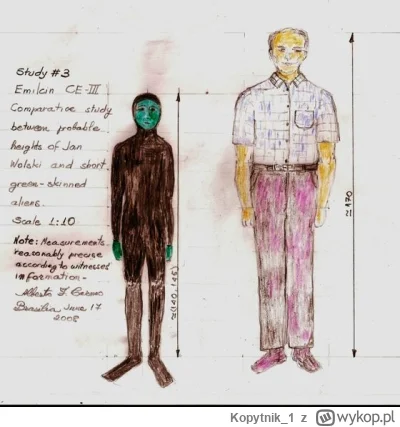 Study #3
Emilcin CE-III
Comparative study
between probable
heights of Jan
Wolski and short
green-skinned
aliens.
Scale 1:10
Note: Measurements
reasonably precise
according to witnesses'
information-
Brasilia, June 17
2008
≈170
Kopytnik_1 z wykop.pl